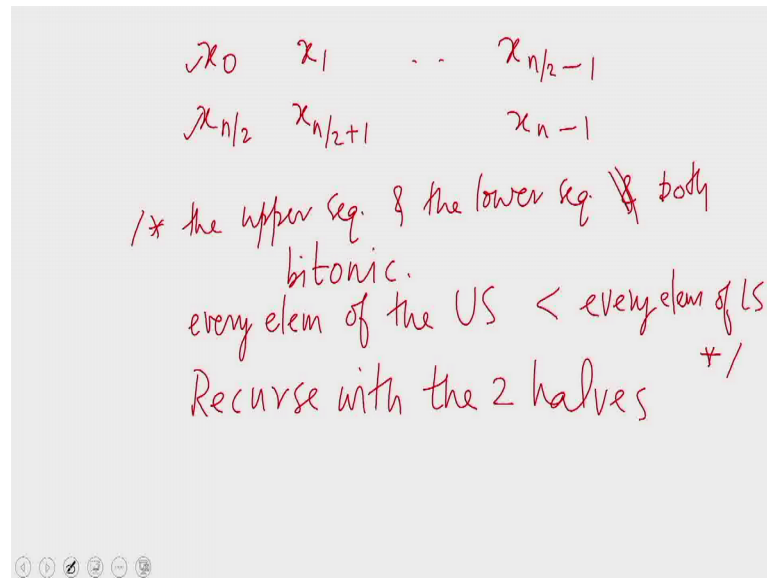 x0 x1 .. xn/2-1
xn/2 xn/2+1 xn-1
/* the upper seq. & the lower seq. both
bitonic.
every elem of the US < every elem of LS
*/
Recurse with the 2 halves